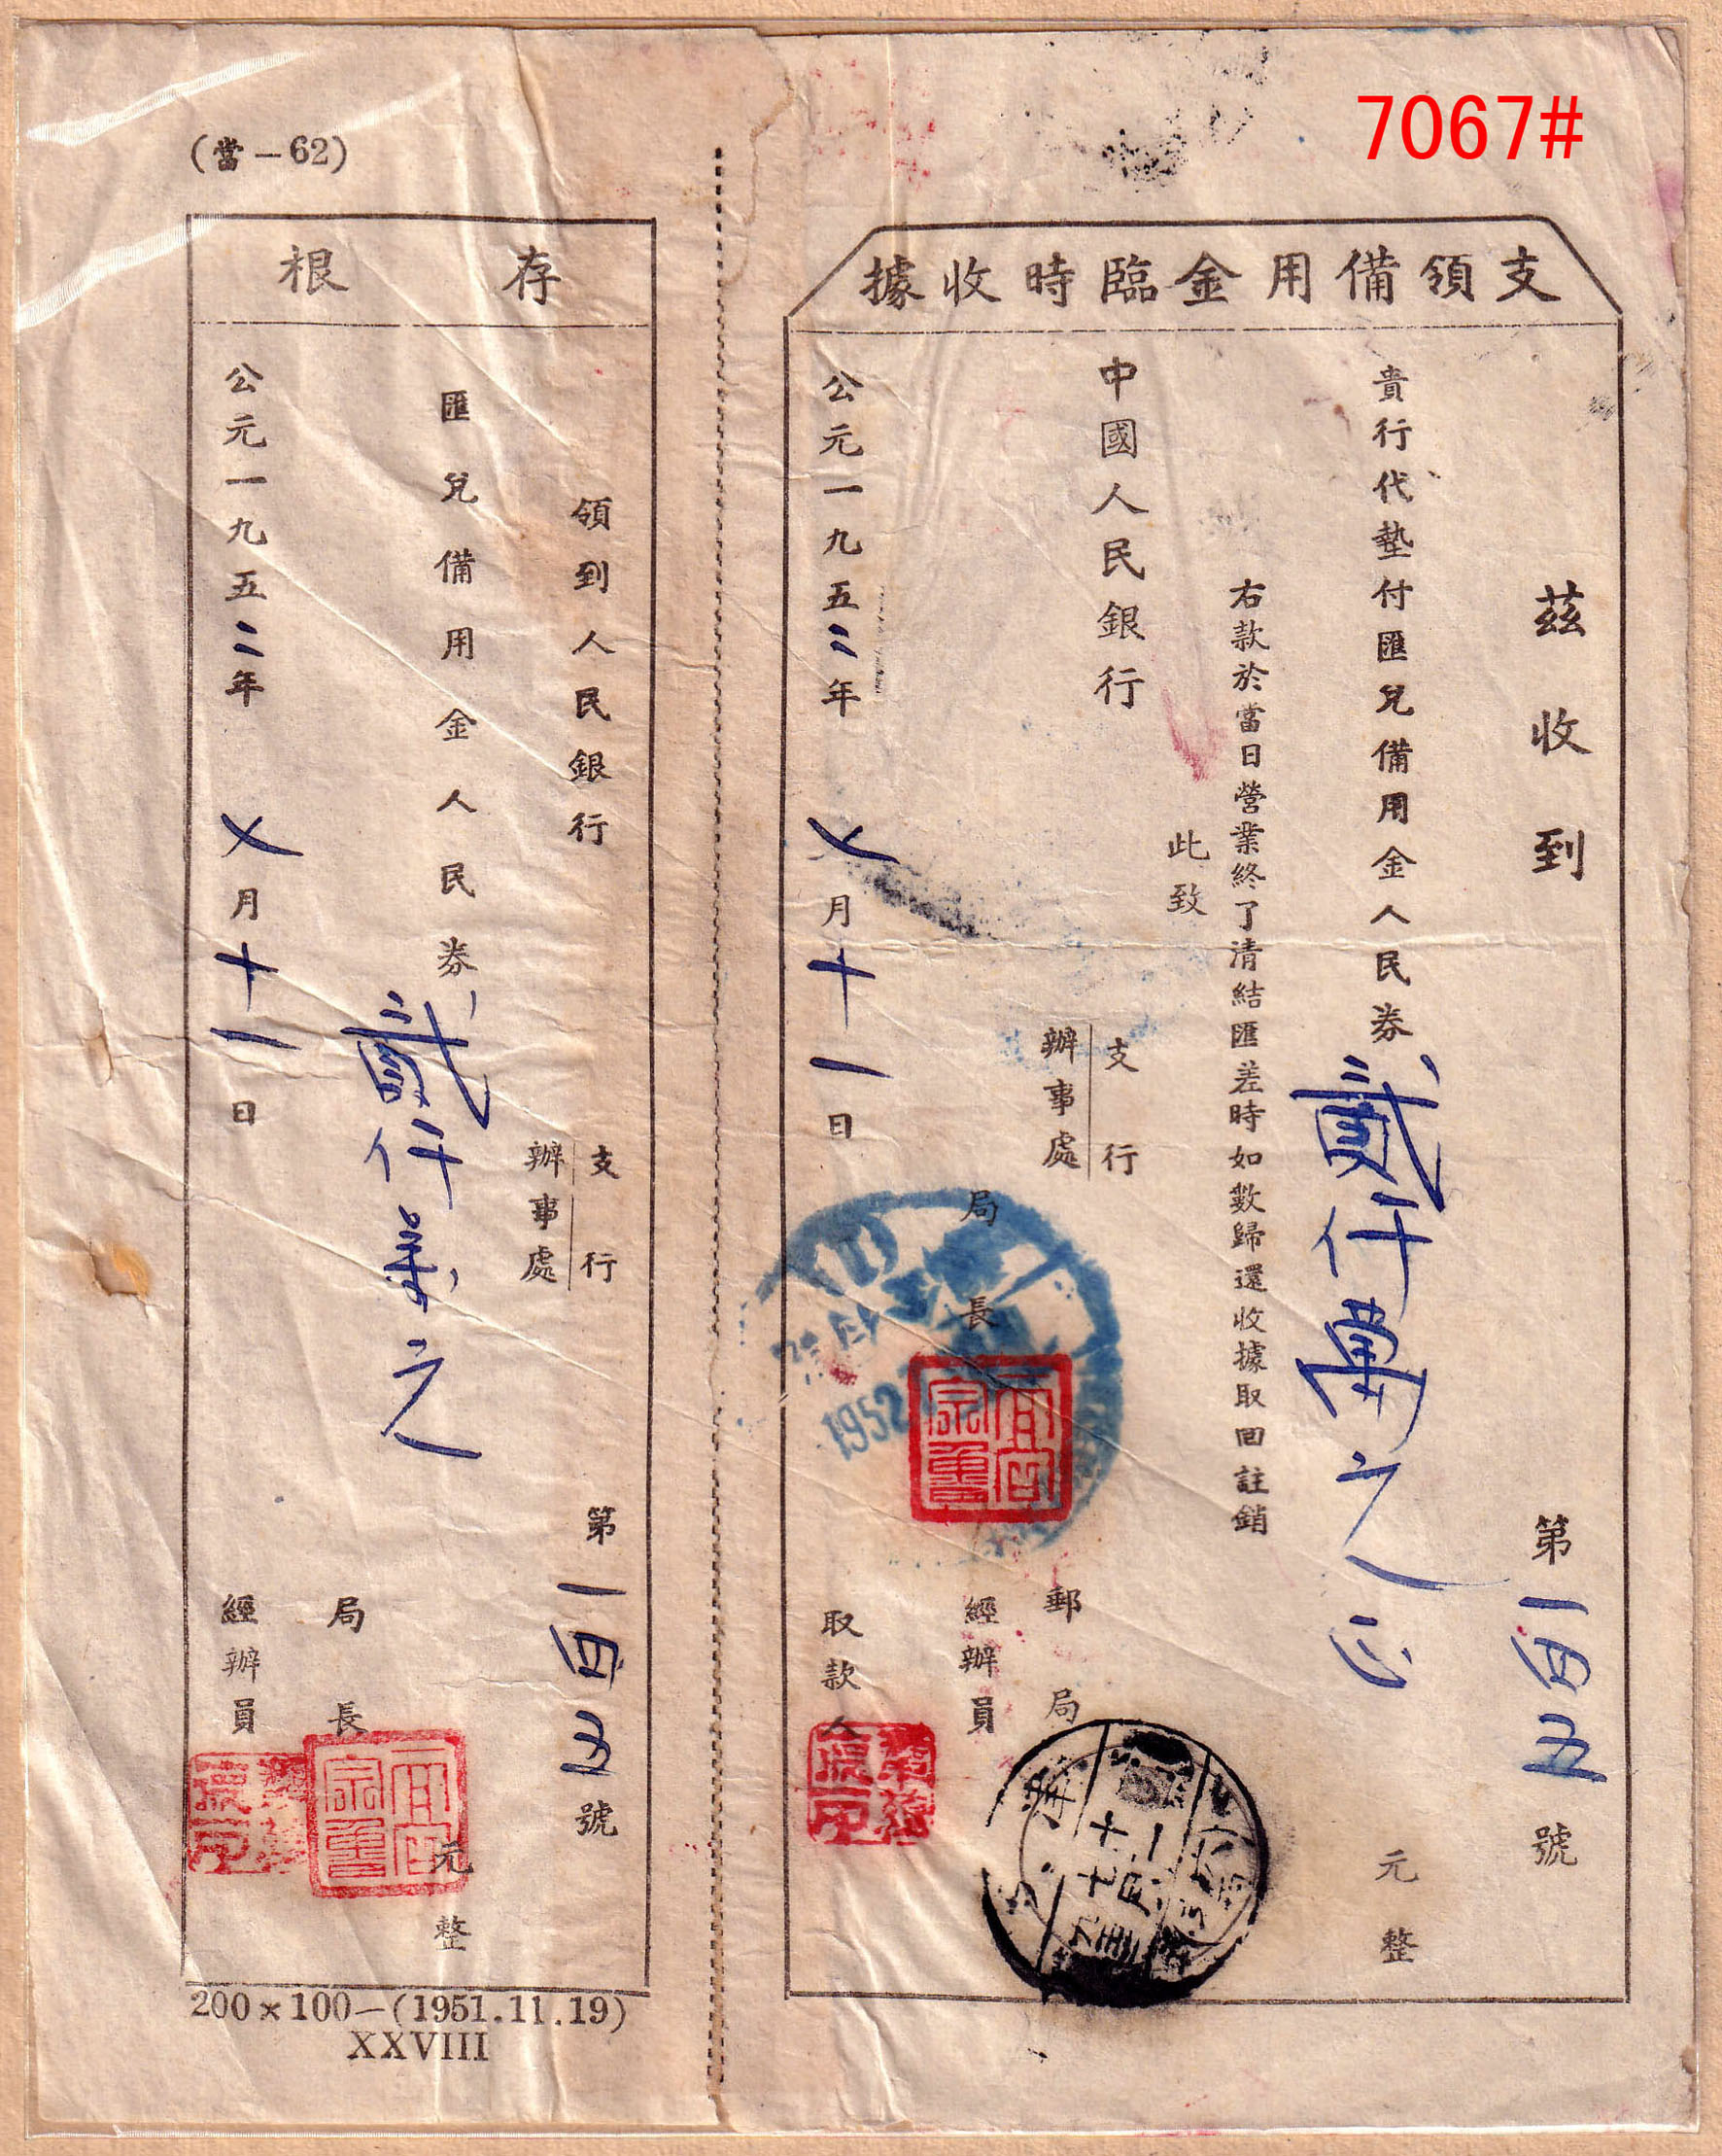 7067#
支領備用金臨時收據
茲收到
第一四五號
貴行代墊付匯兌備用金人民券貳仟萬元正元整
右款於當日營業終了清結匯差時如數歸還收據取回註銷
此致
中國人民銀行
支行
辦事處
郵局
局長
經辦員
取款人
公元一九五二年七月十一日
1952
(當-62)
存根
領到人民銀行
支行
辦事處
第一四五號
匯兌備用金人民券貳仟萬元元整
局長
經辦員
公元一九五二年七月十一日
200×100-(1951.11.19)
XXVIII